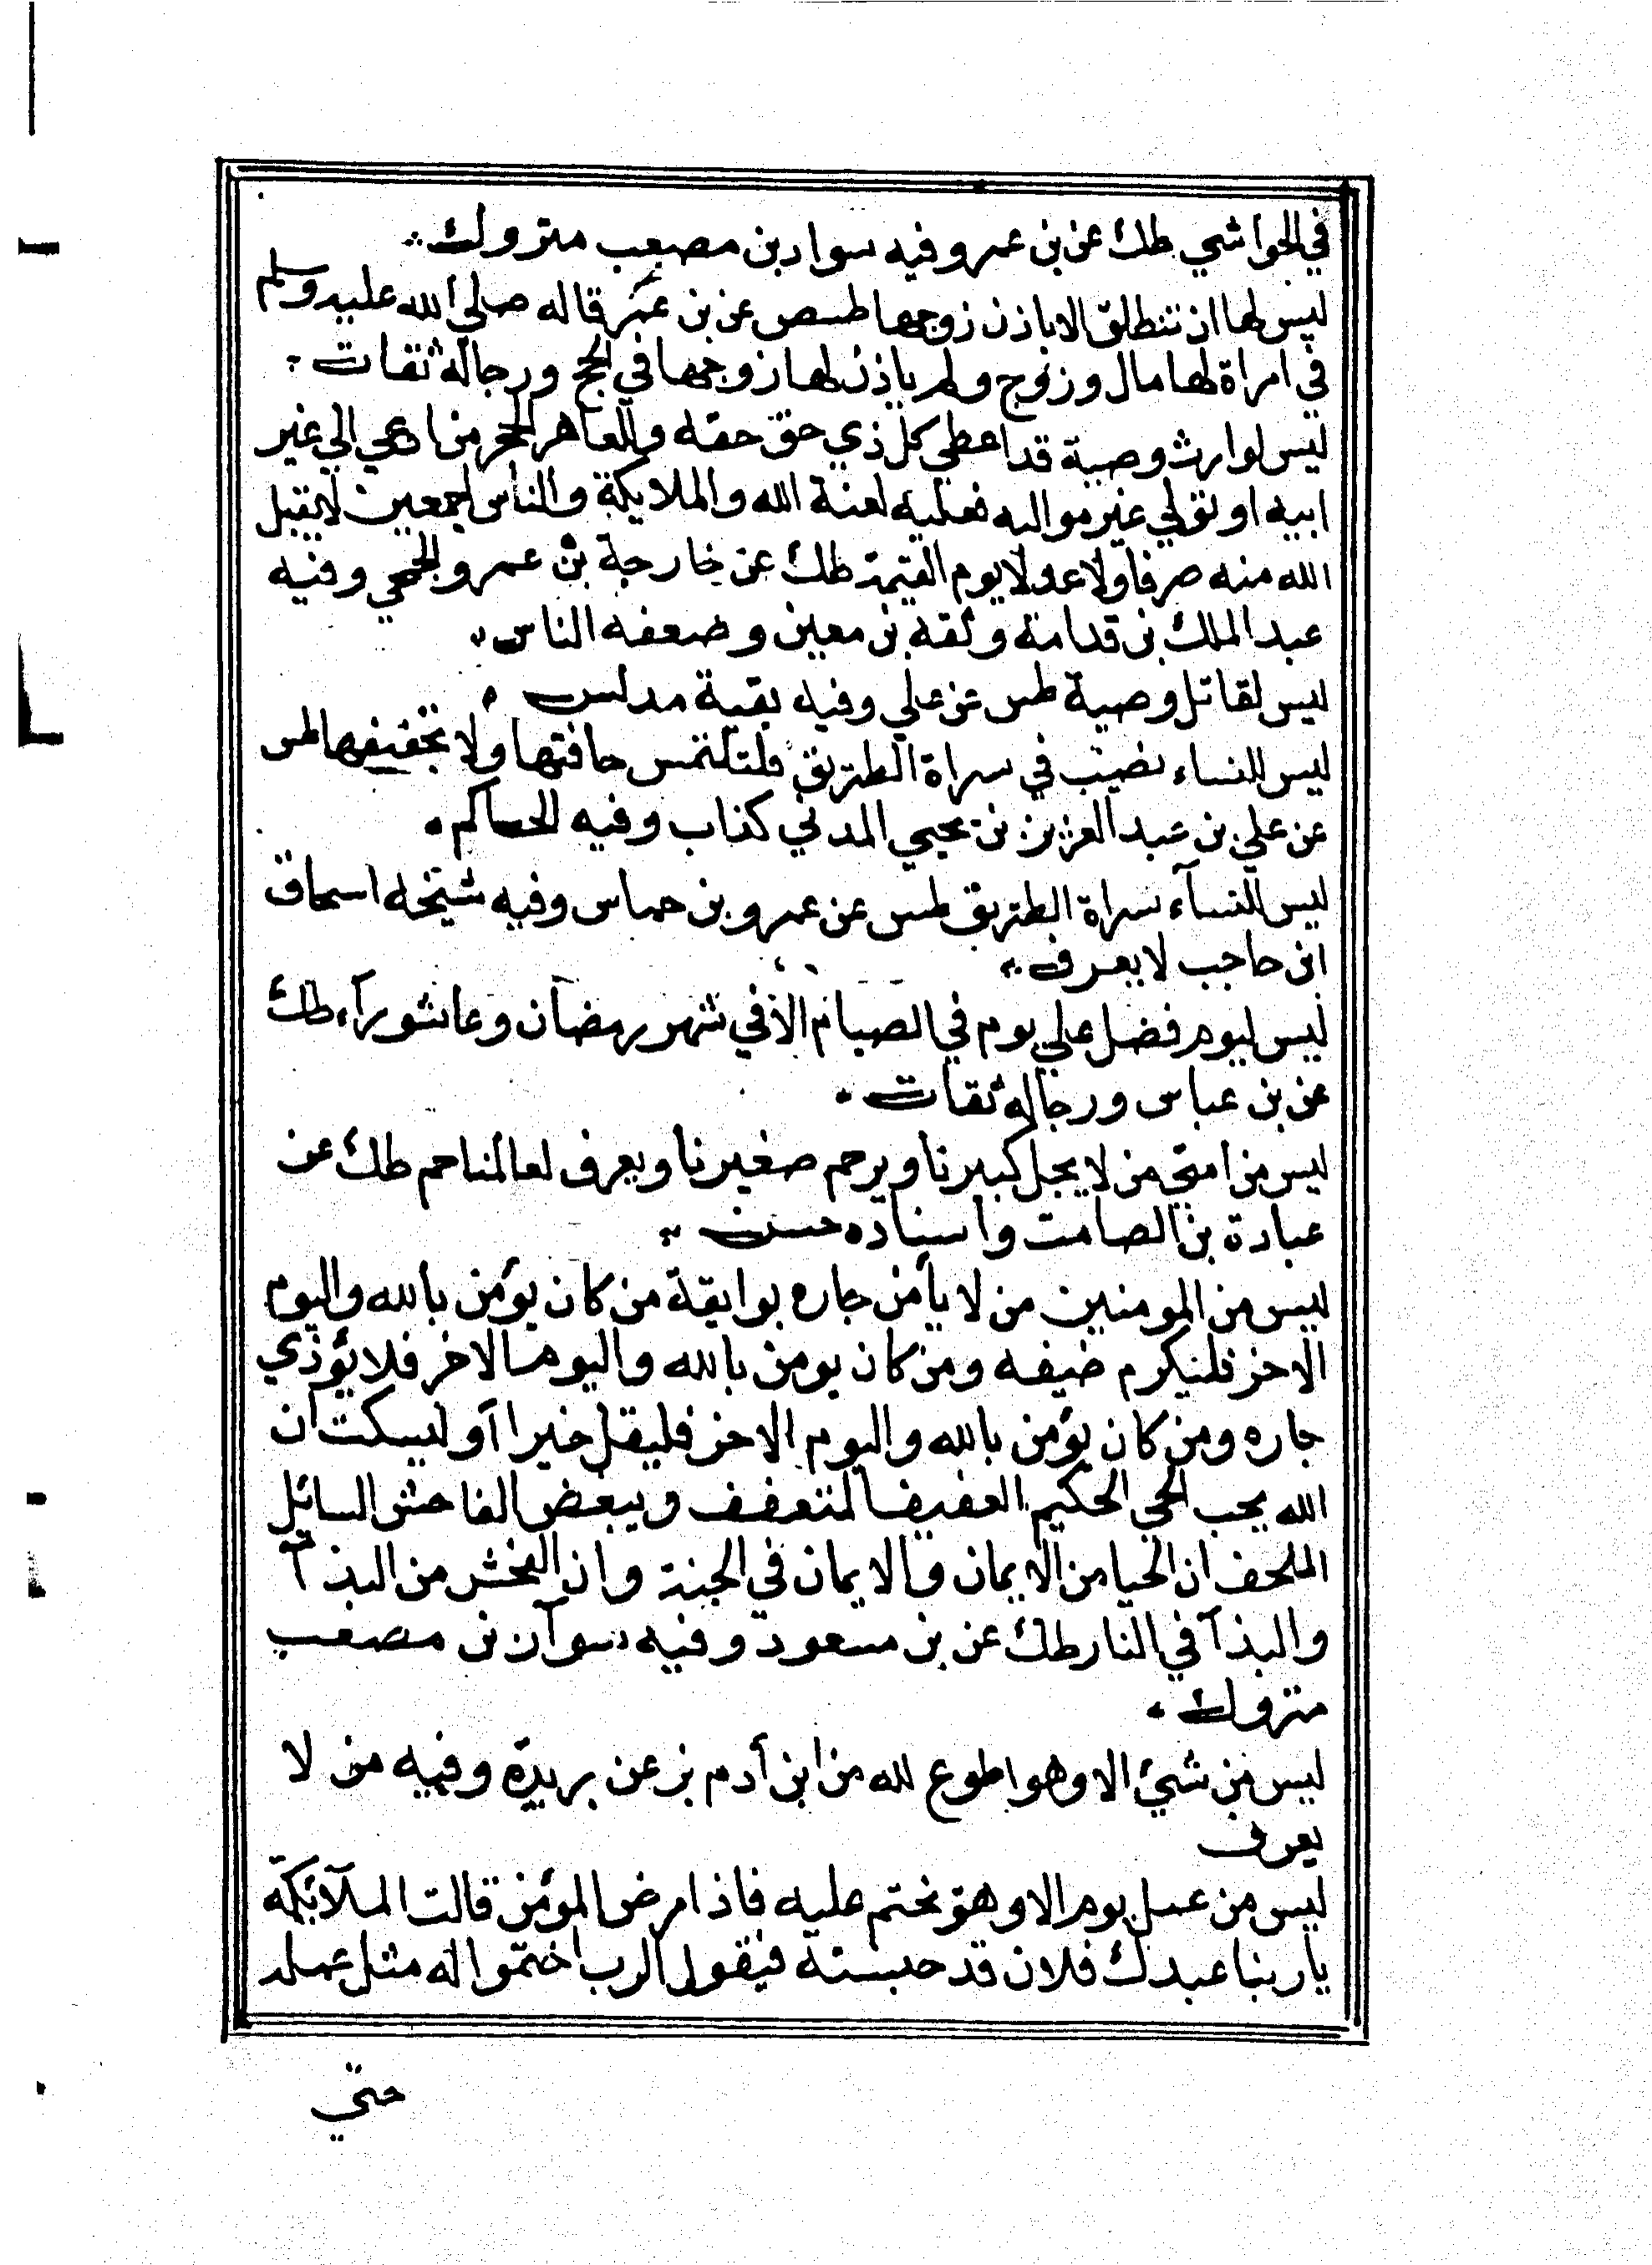 في الحواشي طك عن بن عمر وفيه سوار بن مصعب متروك
ليس لها ان تنطلق الا باذن زوجها طسص عن بن عمر قاله صلي الله عليه وسلم
في امراة لها مال وزوج ولم ياذن لها زوجها في الحج ورجاله ثقات
ليس لوارث وصية قد اعطي كل ذي حق حقه وللعاهر الحجر من ادعي الي غير
ابيه او تولي غير مواليه فعليه لعنة الله والملايكة والناس اجمعين لا يقبل
الله منه صرفا ولا عدلا يوم القيمة طك عن خارجة بن عمرو الجمحي وفيه
عبد الملك بن قدامة وثقه بن معين وضعفه الناس
ليس لقاتل وصية طس عن علي وفيه بقية مدلس
ليس للنساء نصيب في سراة الطريق فلتلتمس حافتها ولا تخفيفها طس
عن علي بن عبد العزيز بن يحيي المدني كذاب وفيه الحساكم
ليس للنسآء سراة الطريق طس عن عمرو بن حماس وفيه شيخه اسحاق
ابن حاجب لا يعرف
ليس ليوم فضل علي يوم في الصيام الا في شهر رمضان وعاشورآء طك
عن بن عباس ورجاله ثقات
ليس من امتي من لا يجل كبيرنا ويرحم صغيرنا ويعرف لعالمنا حم طك عن
عبادة بن الصامت واسناده حسن
ليس من المومنين من لا يأمن جاره بوايقة من كان يؤمن بالله واليوم
الاخر فليكرم ضيفه ومن كان يومن بالله واليوم الاخر فلا يؤذي
جاره ومن كان يؤمن بالله واليوم الاخر فليقل خيرا أو ليسكت ان
الله يحب الحي الحكيم العفيف المتعفف ويبغض الفاحش السائل
الملحف ان الحيا من الايمان والايمان في الجنة وان الفحش من البذآ
والبذآ في النار طك عن بن مسعود وفيه سوآر بن مصعب
متروك
ليس من شيئ الا وهو اطوع لله من ابن أدم بز عن بريدة وفيه من لا
يعرف
ليس من عمل يوم الا وهو يختم عليه فاذا مرض المؤمن قالت الملآئكة
يا ربنا عبدك فلان قد حبسته فيقول الرب اختموا له مثل عمله
حتي